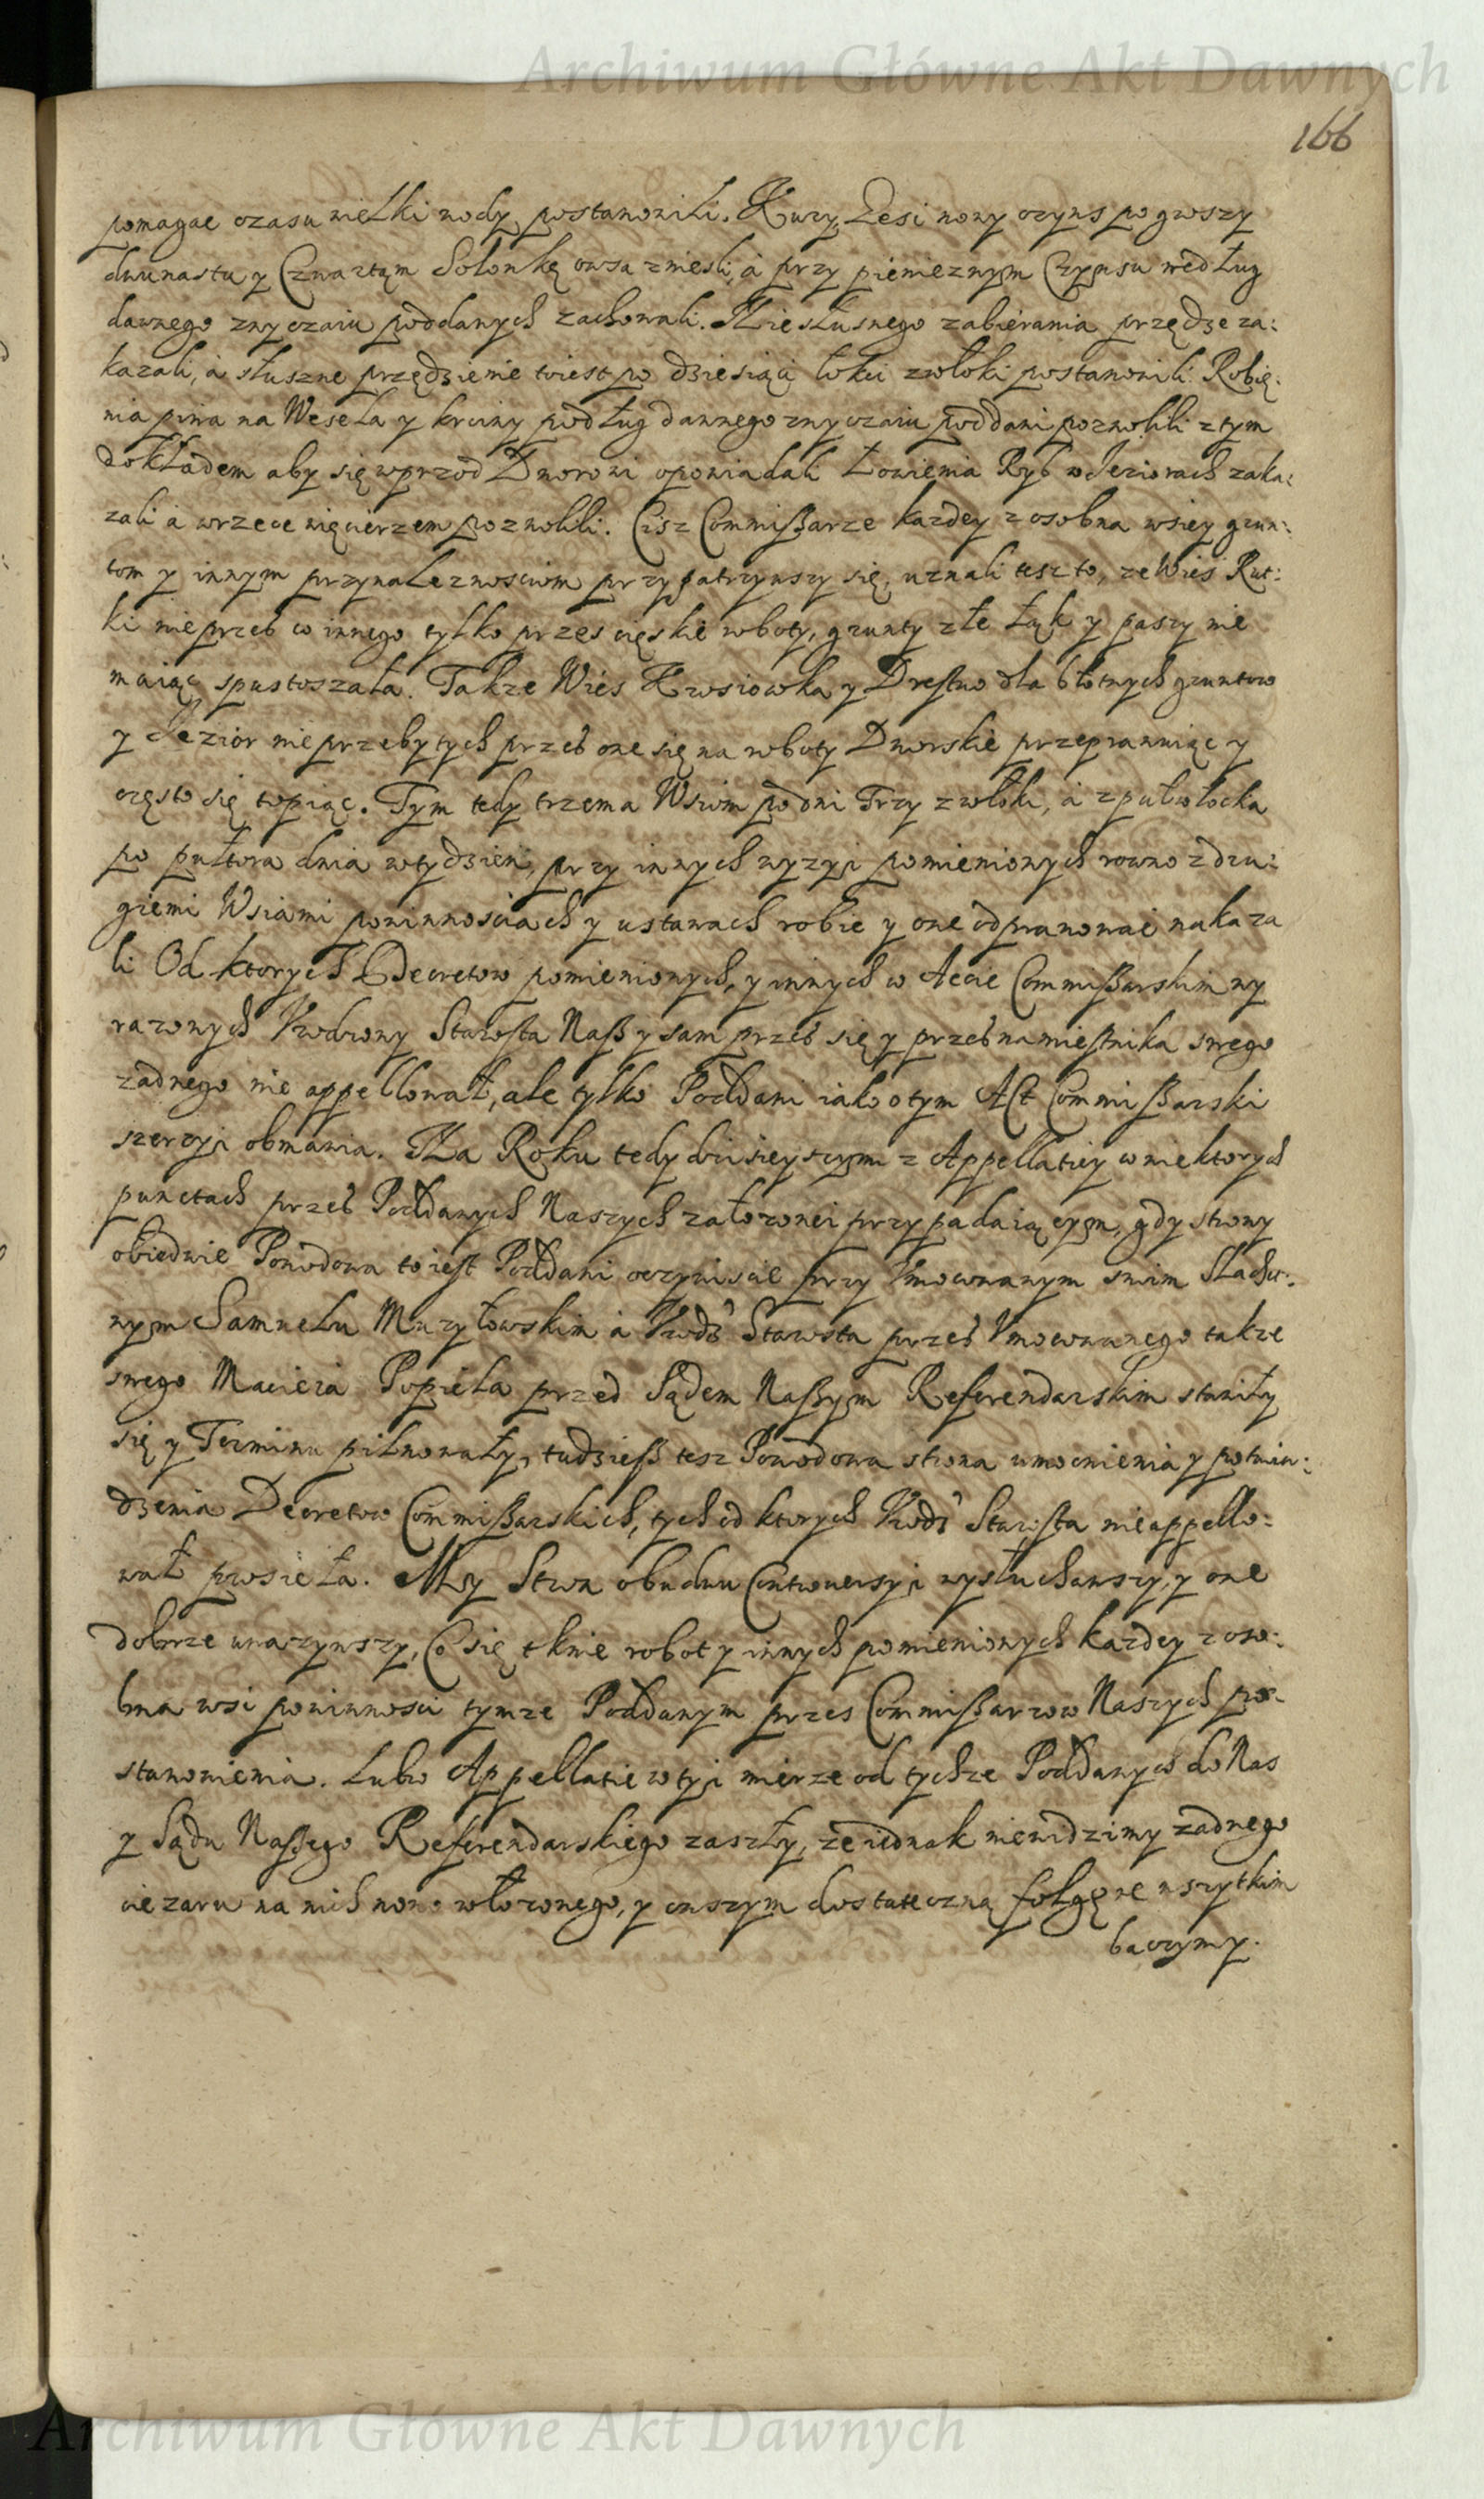 Archiwum Główne Akt Dawnych
166
pomagac czasu wielki wody postanowili. Kury, Gesi nowy czyns po groszy
dwunastu y Czwartąm Solonkę owsa zniesli, á przy pienieznym Czynsu według
dawnego zwyczaiu poddanych zachowali. Niesłusnego zabierania przędze za:
kazali, á słuszne przędzienie toiest po dziesiąci łokci zwłoki postanowili Robie:
nia piwa na Wesela y krciny podług dawnego zwyczaiu poddani pozwolili z tym
dokładem aby się wprzod Dworowi opowiadali Łowienia Ryb w Jeziorach zaka:
zali á wrzece więcierzem pozwolili. Cisz Commißarze kazdey z osobna wsiey grun:
tom y innym przynaleznosciom przypatrzywszy się, uznali tesz to, ze Wies Rut:
ki nie przeb co innego tylko przes cięskie roboty, grunty złe Łąk y paszy nie
maiąc spustoszała. Takze Wies Krosiowka y Drestwo dla błotnych gruntow
y Jezior nieprzebytych przeb one się na roboty Dworskie przeprawuiąc y
często się topiąc. Tym tedy trzema Wsiom po dni Trzy zwłoki, á z pułwłocka
po pułtora dnia w tydzien, przy innych wyzyi pomienionych rowno z dru:
giemi Wsiami powinnosciach y ustawach robic y one odprawowac nakaza
li Od ktorych Decretow pomienionych, y innych w Akcie Commißarskim wy
razonych Vrodzony Starosta Naß y sam przeb się y przeb namiestnika swego
zadnego nie appellował, ale tylko Poddani iako o tym Act Commißarski
szerzyi obmawia. Na Roku tedy dzisieyszym z Appellatiey w niektorych
punctach przeb Poddanych Naszych załozonei przypadaiącym, gdy strony
obiedwie Powodowa to iest Poddani oczywiscie przy Vmocwanym swim Slache:
nym Samuelu Muzyłowskim á Vrodz Starosta przeb Vmocwanego takze
swego Macieia Popiela przed Sądem Naßym Referendarskim stawiły
się y Terminu pilnowały, tudzieß tesz Powodowa strona umocnienia y potwier:
dzenia Decretow Commißarskich, tych od ktorych Vrodz Starosta nieappello:
wał prosieła. My Stron obudwu Controuersyi wysłuchawszy, y one
dobrze uwazywszy, Co się tknie robot y innych pomienionych kazdey z oso:
bna wsi powinnosci tymze Poddanym przes Commißarzow Naszych po:
stanowienia. Lubo Appellatie w tyi mierze od tychze Poddanych do Nas
y Sądu Naßego Referendarskiego zaszły, ze iednak niewidzimy zadnego
ciezaru na nich nowo włozonego, y owszym dostateczną folgę we wszytkim
baczymy.
Archiwum Główne Akt Dawnych